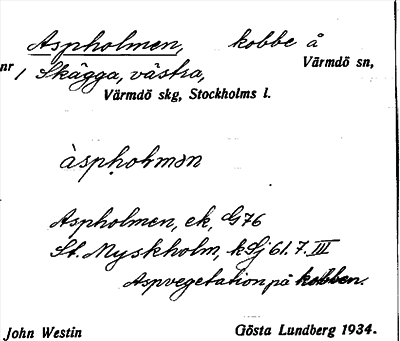 Aspholmen, kobbe å
nr 1 Skägga, västra, Värmdö sn,
Värmdö skg, Stockholms l.
àspholmən
Aspholmen, ek, G76
St. Myskholm, k Sj 61.7.III
Aspvegetation på kobben.
John Westin Gösta Lundberg 1934.